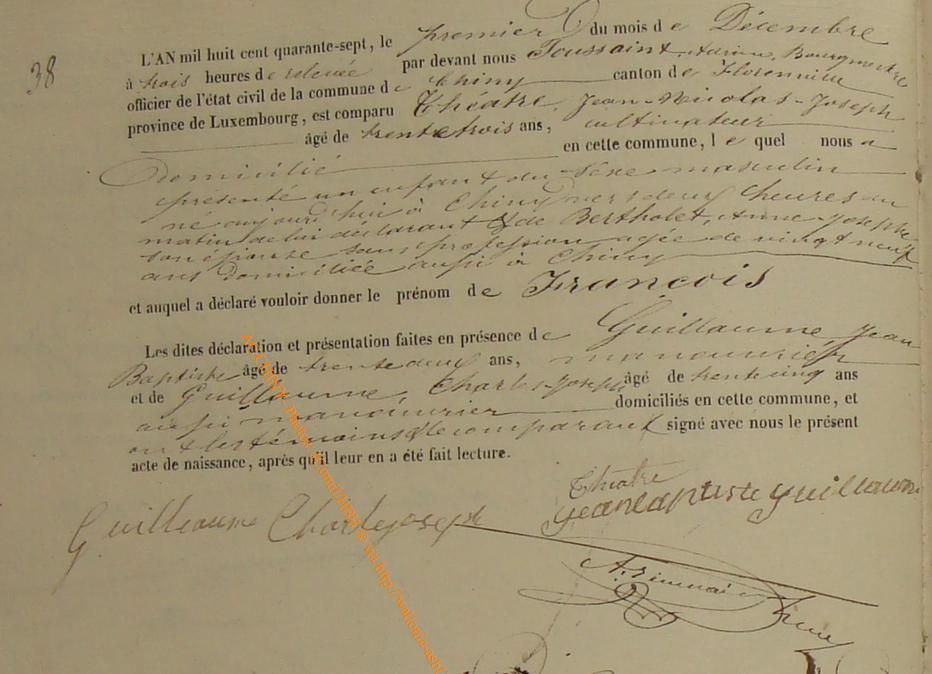 38
L'AN mil huit cent quarante-sept, le premier du mois de Décembre
à trois heures de relevée par devant nous Toussaint, Adrien, Bourgmestre
officier de l'état civil de la commune de Chiny canton de Florenville
province de Luxembourg, est comparu Théâtre, Jean-Nicolas-Joseph
âgé de trente trois ans, cultivateur
domicilié en cette commune, le quel nous a
présenté un enfant du sexe masculin
né aujourd'hui à Chiny vers deux heures du
matin de lui déclarant & de Bertholet, Anne-Josephe
son épouse sans profession agée de vingt neuf
ans domiciliée aussi à Chiny
et auquel a déclaré vouloir donner le prénom de François
Les dites déclaration et présentation faites en présence de Guillaume Jean
Baptiste âgé de trente deux ans, manouvrier
et de Guillaume, Charles-Joseph âgé de trente cinq ans
aussi manouvrier domiciliés en cette commune, et
ont les témoins & le comparant signé avec nous le présent
acte de naissance, après qu'il leur en a été fait lecture.
Théatre
Jean baptiste guillaume
Guillaume Charle joseph